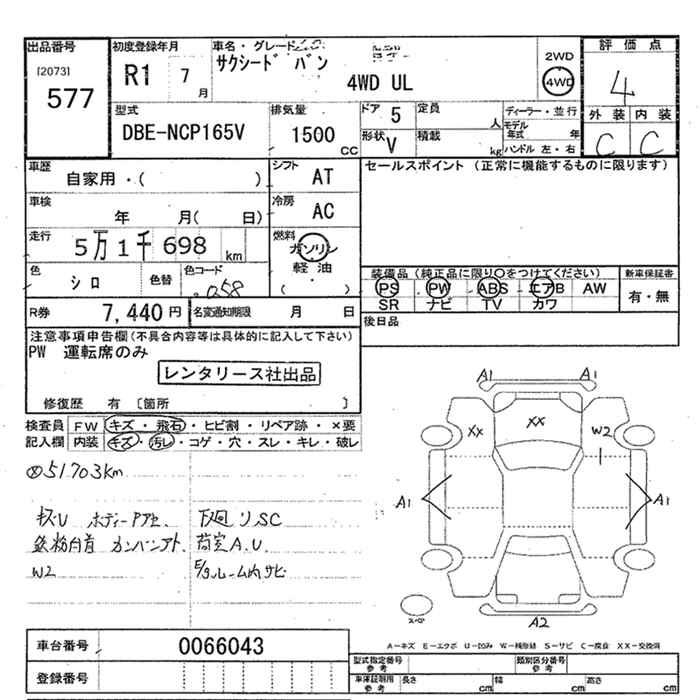 出品番号
[2073]
577
初度登録年月
R1 7 月
車名・グレード
サクシード バン
4WD UL
2WD
4WD
評価点
4
外装 内装
C C
型式
DBE-NCP165V
排気量
1500 CC
ドア 5
形状 V
定員 人
積載 kg
ディーラー・並行
モデル年式 年
ハンドル 左・右
車歴
自家用・( )
シフト AT
セールスポイント (正常に機能するものに限ります)
車検
年 月( 日)
冷房 AC
走行
5万1千698 km
燃料
ガソリン
軽油
( )
色
シロ
色替
色コード
058
装備品 (純正品に限り○をつけてください)
PS PW ABS エアB AW
SR ナビ TV カワ
新車保証書
有・無
R券 7,440円
名変通知期限 月 日
後日品
注意事項申告欄(不具合内容等は具体的に記入して下さい)
PW 運転席のみ
レンタリース社出品
修復歴 有 〔箇所 〕
検査員記入欄
FW キズ・飛石・ヒビ割・リペア跡・×要
内装 キズ・汚レ・コゲ・穴・スレ・キレ・破レ
51703km
キズU ボディーPアセ
下廻りSC
鉄粉 カンバンアト
荷室A.U
W2
E/gルーム内サビ
A1 A1
XX XX W2
A1 A1
A2
スペア
A－キズ E－エクボ U－凹み W－補修跡 S－サビ C－腐食 XX－交換済
車台番号 0066043
登録番号
型式指定番号 参考
類別区分番号 参考
車庫証明用 参考 長さ cm 幅 cm 高さ cm